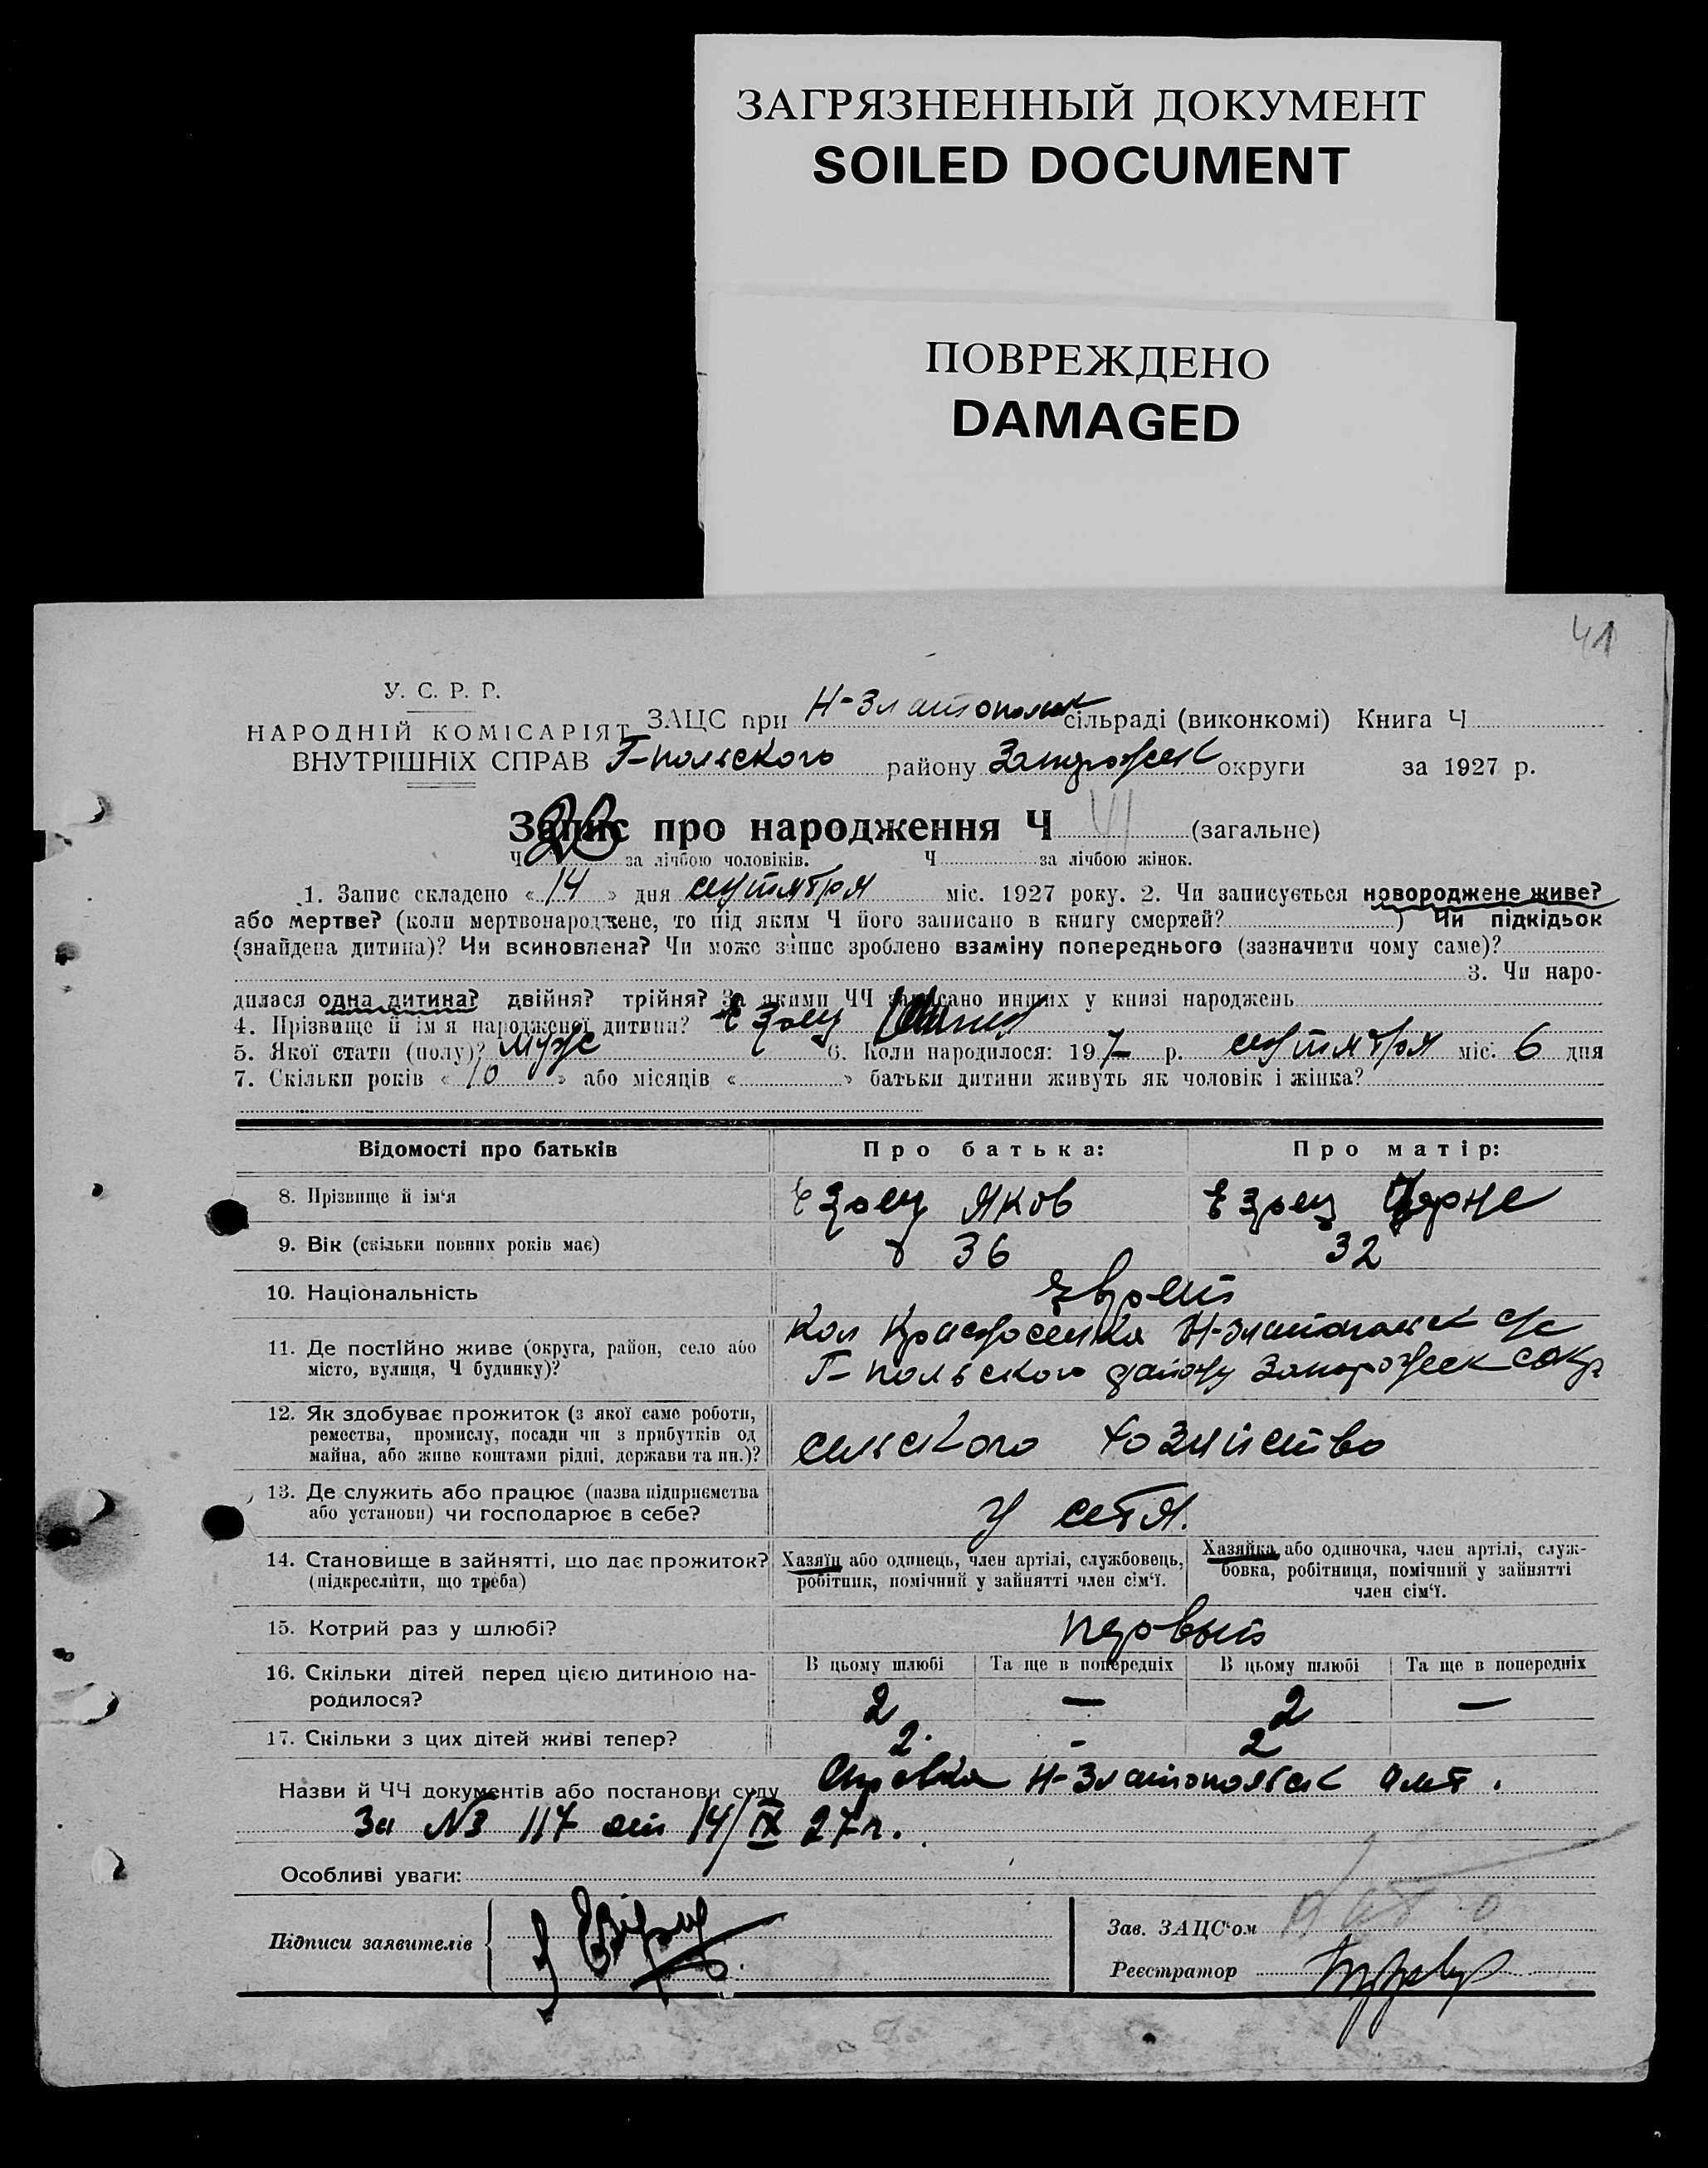 ЗАГРЯЗНЕННЫЙ ДОКУМЕНТ
SOILED DOCUMENT
ПОВРЕЖДЕНО
DAMAGED
41
У. С. Р. Р.
НАРОДНІЙ КОМІСАРІЯТ
ВНУТРІШНІХ СПРАВ
ЗАЦС при Н-Златополск сільраді (виконкомі) Книга Ч
Г-польского району Запорожск округи за 1927 р.
Запис про народження Ч VI (загальне)
Ч за лічбою чоловіків. Ч за лічбою жінок.
1. Запис складено « 14 » дня сентября міс. 1927 року. 2. Чи записується новороджене живе?
або мертве? (коли мертвонароджене, то під яким Ч його записано в книгу смертей? ) Чи підкідьок
(знайдена дитина)? Чи всиновлена? Чи може запис зроблено взаміну попереднього (зазначити чому саме)?
3. Чи наро-
дилася одна дитина? двійня? трійня? За якими ЧЧ записано инших у книзі народжень
4. Прізвище й ім'я народженої дитини?
5. Якої стати (полу)? муж 6. Коли народилося: 197 р. сентября міс. 6 дня
7. Скільки років « 10 » або місяців « » батьки дитини живуть як чоловік і жінка?
Відомості про батьків Про батька: Про матір:
8. Прізвище й ім'я Яков
9. Вік (скільки повних років має) 36 32
10. Національність
11. Де постійно живе (округа, район, село або
місто, вулиця, Ч будинку)?
кол Н-златопольск с/с
Г-польского району Запорожск окр
12. Як здобуває прожиток (з якої саме роботи,
ремества, промислу, посади чи з прибутків од
майна, або живе коштами рідні, держави та ин.)?
сельского хозяйство
13. Де служить або працює (назва підприємства
або установи) чи господарює в себе?
у себя.
14. Становище в зайнятті, що дає прожиток?
(підкреслити, що треба)
Хазяїн або одинець, член артілі, службовець,
робітник, помічний у зайнятті член сім'ї.
Хазяйка або одиночка, член артілі, служ-
бовка, робітниця, помічний у зайнятті
член сім'ї.
15. Котрий раз у шлюбі? первый
16. Скільки дітей перед цією дитиною на-
родилося?
В цьому шлюбі Та ще в попередніх В цьому шлюбі Та ще в попередніх
2 — 2 —
17. Скільки з цих дітей живі тепер? 2. - 2
Назви й ЧЧ документів або постанови суду Справка Н-Златопольск
За № 117 от 14/IX 27 г.
Особливі уваги:
Підписи заявителів
Зав. ЗАЦС'ом
Реєстратор